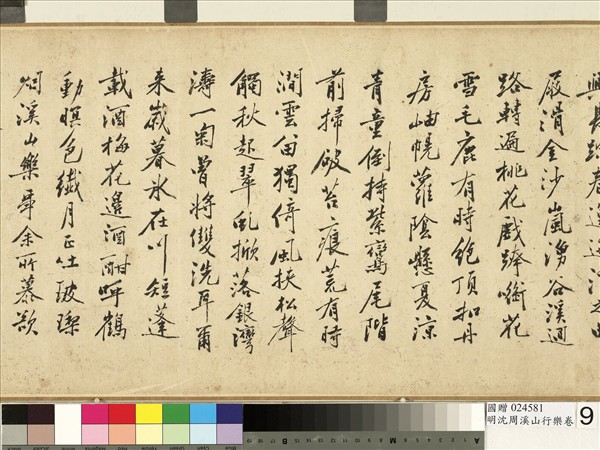 興長踏春
屐滑金沙嵐湧谷溪迴
路轉遍桃花戲蹄銜花
雪毛鹿有時絶頂扣丹
房岫幌蘿陰懸夏涼
青童倒持紫鸞尾階
前掃破苔痕荒有時
澗雲留獨倚風挾松聲
觸秋起翠乱掀落銀灣
濤一匊曾將雙洗耳爾
来嵗暮氷在川短蓬
載酒梅花邊酒酣呼鶴
動暝色纖月正吐玻瓈
烟溪山樂事余所慕欲
國贈 024581
明沈周溪山行樂卷
9